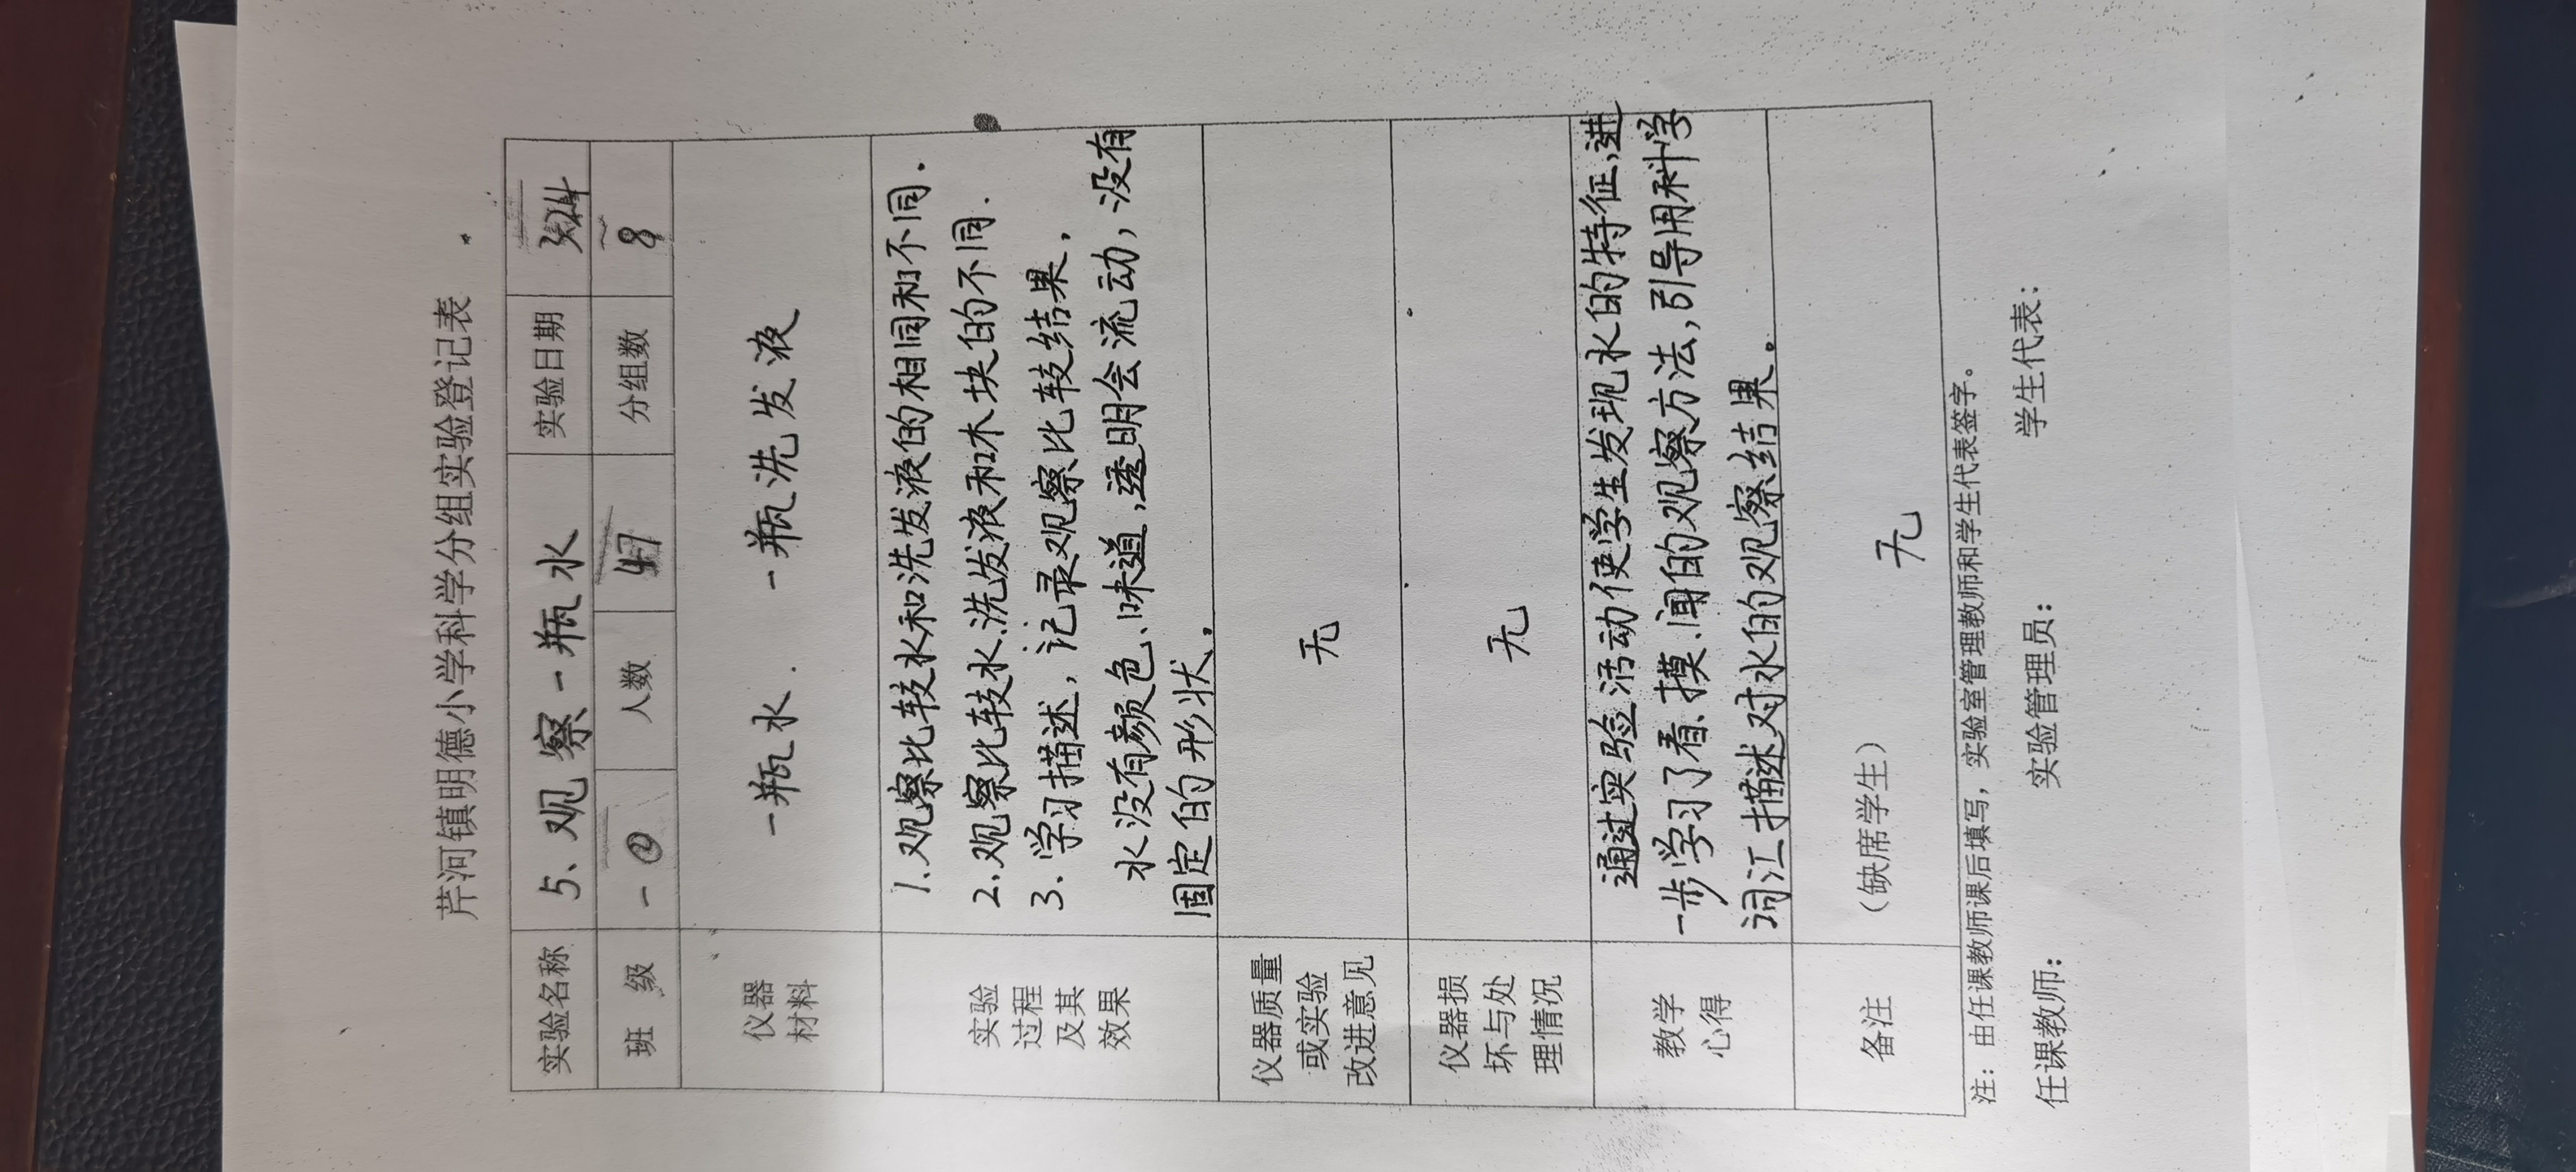 芹河镇明德小学科学分组实验登记表
实验名称 5、观察一瓶水 实验日期
班 级 一② 人数 47 分组数 8
仪器
材料
一瓶水. 一瓶洗发液
实验
过程
及其
效果
1.观察比较水和洗发液的相同和不同.
2.观察比较水.洗发液和木块的不同.
3.学习描述,记录观察比较结果,
水没有颜色、味道,透明会流动,没有
固定的形状.
仪器质量
或实验
改进意见
无
仪器损
坏与处
理情况
无
教学
心得
通过实验活动使学生发现水的特征,进
一步学习了看、摸、闻的观察方法,引导用科学
词汇描述对水的观察结果。
备注
(缺席学生)
无
注:由任课教师课后填写,实验室管理教师和学生代表签字。
任课教师: 实验管理员: 学生代表: